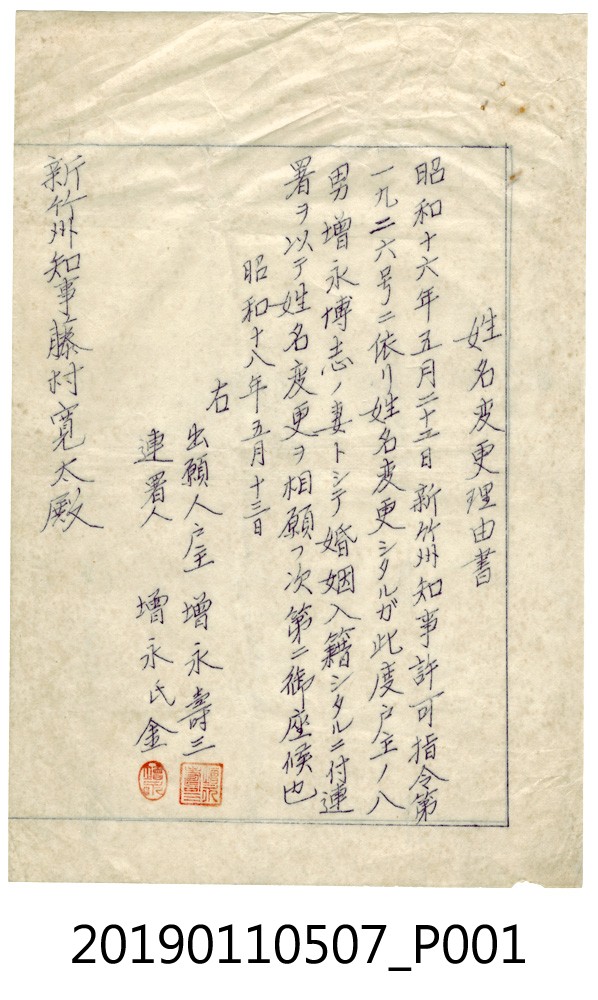 姓名変更理由書
昭和十六年五月二十二日新竹州知事許可指令第
一九二六号ニ依リ姓名変更シタルガ此度戸主ノ八
男増永博志ノ妻トシテ婚姻入籍シタルニ付連
署ヲ以テ姓名変更ヲ相願フ次第ニ御座候也
昭和十八年五月十三日
右
出願人戸主 増永壽三
連署人 増永氏金
新竹州知事藤村寛太殿
20190110507_P001